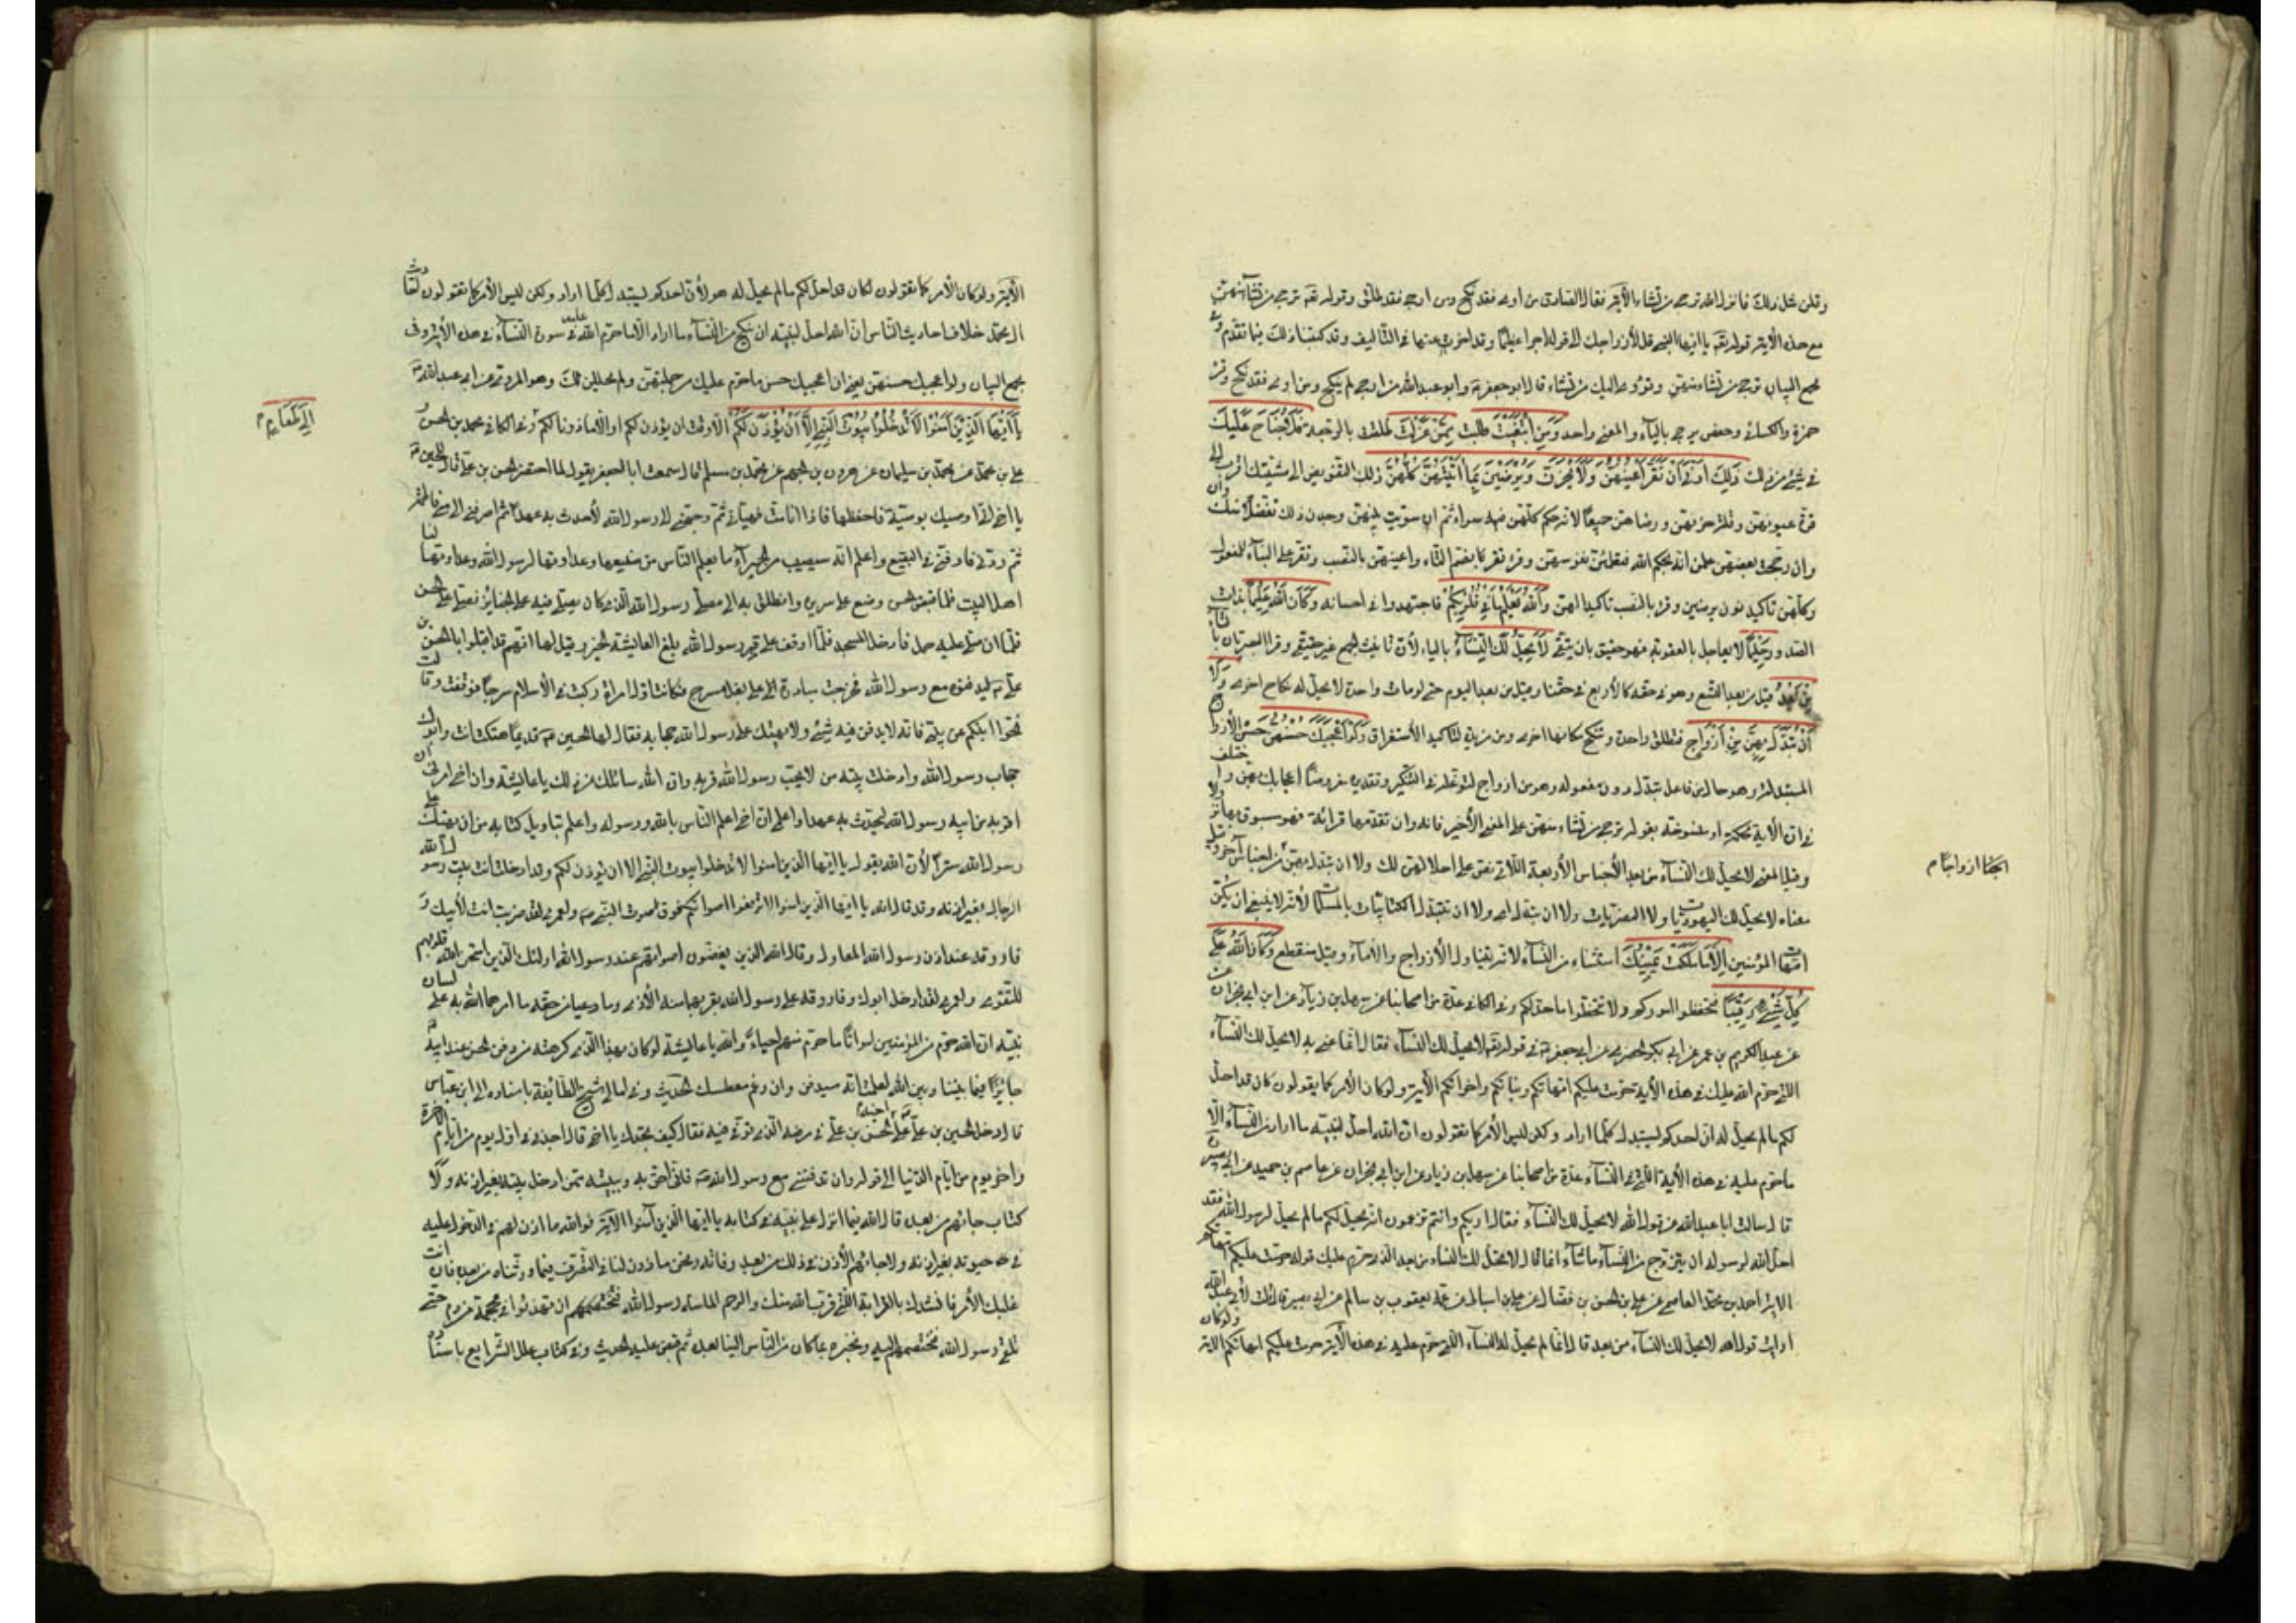 وقلن مثل ذلك فانزل الله ترجى من تشاء الآية فقال الصادق من آوى فقد نكح ومن ارجى فقد طلق وقوله تعالى ترجى من تشاء منهن
مع هذه الآية قوله تعالى يا ايها النبي قل لأزواجك الى قوله اجرا عظيما وقد اخرت عنها في التأليف وقد كتبنا ذلك فيما تقدم وفي
مجمع البيان ترجى من تشاء منهن وتؤوى اليك من تشاء قال ابو جعفر وابو عبد الله من ارجى لم ينكح ومن اوى فقد نكح وقرء
حمزة والكسائي وحفص ترجى بالياء والمعنى واحد وَمَنِ ابْتَغَيْتَ طلبت مِمَّنْ عَزَلْتَ طلقت بالرجعة فَلَا جُنَاحَ عَلَيْكَ
في شيء من ذلك ذَلِكَ أَدْنَى أَنْ تَقَرَّ أَعْيُنُهُنَّ وَلَا يَحْزَنَّ وَيَرْضَيْنَ بِمَا آتَيْتَهُنَّ كُلُّهُنَّ ذلك التفويض الى مشيتك اقرب الى
قرة عيونهن وقلة حزنهن ورضاهن جميعا لانه حكم كلهن فيه سواء ثم ان سويت بينهن وجدن ذلك تفضلا منك
وان رجحت بعضهن علمن انه بحكم الله فتطمئن نفوسهن وقرء تقر بضم التاء واعينهن بالنصب وتقر على البناء للمفعول
وكلهن تاكيد نون يرضين وقرء بالنصب تاكيدا لهن وَاللَّهُ يَعْلَمُ مَا فِي قُلُوبِكُمْ فاجتهدوا في احسانه وَكَانَ اللَّهُ عَلِيمًا بذات
الصدور حَلِيمًا لا يعاجل بالعقوبة فهو حقيق بان يتقى لَا يَحِلُّ لَكَ النِّسَاءُ بالياء لأن تأنيث الجمع غير حقيقي وقرأ البصريان بالتاء
مِنْ بَعْدُ قيل من بعد التسع وهو في حقه كالأربع في حقنا وقيل من بعد اليوم حتى لو ماتت واحدة لا يحل له نكاح اخرى وَلَا
أَنْ تَبَدَّلَ بِهِنَّ مِنْ أَزْوَاجٍ فتطلق واحدة وتنكح مكانها اخرى ومن مزيدة لتاكيد الأستغراق وَلَوْ أَعْجَبَكَ حُسْنُهُنَّ حسن الأزواج
المستبدلة وهو حال من فاعل تبدل دون مفعوله وهو من ازواج لتوغله في التنكير وتقديره مفروضا اعجابك بهن واختلف
في ان الآية محكمة او منسوخة بقوله ترجى من تشاء منهن على المعنى الأخير فانه وان تقدمها قرائة فهو مسبوق بها نزولا
وقيل المعنى لا يحل لك النساء من بعد الأجناس الأربعة اللاتي نص على احلالهن لك ولا ان تبدل بهن من اجناس آخر وقيل
معناه لا يحل لك اليهوديات ولا النصرانيات ولا ان تبدل اي ولا ان تتبدل الكتابيات بالمسلمات لأنه لا ينبغي ان يكن
امهات المؤمنين إِلَّا مَا مَلَكَتْ يَمِينُكَ استثناء من النساء لأنه يتناول الأزواج والأماء وقيل منقطع وَكَانَ اللَّهُ عَلَى
كُلِّ شَيْءٍ رَقِيبًا فتحفظوا امركم ولا تتخطوا ما حد لكم وفي الكافي عدة من اصحابنا عن سهل بن زياد عن ابن ابي نجران عن
عن عبد الكريم بن عمر عن ابي بكر الحضرمي عن ابي جعفر في قوله تعالى لا يحل لك النساء فقال انما عنى به لا يحل لك النساء
اللتى حرم الله عليك في هذه الآية حرمت عليكم امهاتكم وبناتكم واخواتكم الآية ولو كان الأمر كما يقولون كان قد احل
لكم ما لم يحل له ان احدكم يستبدل كلما اراد ولكن ليس الأمر كما يقولون ان الله احل لنبيه ما اراد من النساء الا
ما حرم عليه في هذه الآية التي في النساء عدة من اصحابنا عن سهل بن زياد عن ابن ابي نجران عن عاصم بن حميد عن ابي بصير
قال سالت ابا عبد الله عن قول الله لا يحل لك النساء فقال اراكم وانتم تزعمون انه يحل لكم ما لم يحل لرسول الله فقد
احل الله لرسوله ان يتزوج من النساء ما شاء انما قال لا يحل لك النساء من بعد الذي حرم عليك قوله حرمت عليكم امهاتكم
الآية احمد بن محمد العاصمي عن علي بن الحسن بن فضال عن علي بن اسباط عن عمه يعقوب بن سالم عن ابي بصير قال قلت لأبي عبد الله
ارايت قول الله لا يحل لك النساء من بعد قال انما لم يحل له النساء اللتى حرم عليه في هذه الآية حرمت عليكم امهاتكم الآية ولو كان
الآية ولو كان الأمر كما تقولون لكان قد احل لكم ما لم يحل له هو لأن احدكم يستبدل كلما اراد ولكن ليس الأمر كما تقولون احاديث
ال محمد خلاف احاديث الناس ان الله احل لنبيه ان ينكح من النساء ما اراد الا ما حرم الله عليه في سورة النساء في هذه الأية وفي
مجمع البيان ولو اعجبك حسنهن يعني ان اعجبك حسن ما حرم عليك من جملتهن ولم يحللن لك وهو المروي عن ابي عبد الله
يَا أَيُّهَا الَّذِينَ آمَنُوا لَا تَدْخُلُوا بُيُوتَ النَّبِيِّ إِلَّا أَنْ يُؤْذَنَ لَكُمْ الا وقت ان يؤذن لكم او الا ماذونا لكم وفي الكافي محمد بن الحسن و
علي بن محمد عن محمد بن سليمان عن هرون بن الجهم عن محمد بن مسلم قال سمعت ابا جعفر يقول لما احتضر الحسن بن علي قال للحسين
يا اخي اني اوصيك بوصية فاحفظها فاذا انا مت فهيئني ثم وجهني الى رسول الله لأحدث به عهدا ثم اصرفني الى امي فاطمة
ثم ردني فادفني في البقيع واعلم انه سيصيبني من الحميراء ما يعلم الناس من صنيعها وعداوتها لرسول الله وعداوتها لنا
اهل البيت فلما قبض الحسن وضع على سريره وانطلق به الى مصلى رسول الله الذي كان يصلى فيه على الجنايز فصلى على الحسن
فلما ان صلى عليه حمل فأدخل المسجد فلما اوقف على قبر رسول الله بلغ العايشة الخبر وقيل لها انهم قد اقبلوا بالحسن بن
علي ليدفنوه مع رسول الله فخرجت مبادرة على بغل بسرج فكانت اول امراة ركبت في الأسلام سرجا فوقفت وقالت
نحوا ابنكم عن بيتي فانه لا يدفن فيه شيء ولا يهتك على رسول الله حجابه فقال لها الحسين قديما هتكت انت وابوك
حجاب رسول الله وادخلت بيته من لا يحب رسول الله قربه وان الله سائلك عن ذلك يا عايشة وان اخي امرني ان
اقربه من ابيه رسول الله ليحدث به عهدا واعلمي ان اخي اعلم الناس بالله ورسوله واعلم بتاويل كتابه من ان يهتك على
رسول الله سترا لأن الله يقول يا ايها الذين امنوا لا تدخلوا بيوت النبي الا ان يؤذن لكم وقد ادخلت انت بيت رسول الله
الرجال بغير اذنه وقد قال الله يا ايها الذين امنوا لا ترفعوا اصواتكم فوق صوت النبي ولعمري لقد ضربت انت لأبيك و
فاروقه عند اذن رسول الله المعاول وقال الله الذين يغضون اصواتهم عند رسول الله اولئك الذين امتحن الله قلوبهم
للتقوى ولعمري لقد ادخل ابوك وفاروقه على رسول الله بقربهما منه الأذى وما رعيا من حقه ما امرهما الله به على لسان
نبيه ان الله حرم من المؤمنين امواتا ما حرم منهم احياء وتالله يا عايشة لو كان هذا الذي كرهته من دفن الحسن عند ابيه
جايزا فيما بيننا وبين الله لعلمت انه سيدفن وان رغم معطسك الحديث وفي امالي شيخ الطائفة باسناده الى ابن عباس
قال دخل الحسين بن علي على اخيه الحسن بن علي في مرضه الذي توفى فيه فقال كيف تجدك يا اخي قال اجدني في اول يوم من ايام الآخرة
واخر يوم من ايام الدنيا الى قوله وان تدفنني مع رسول الله فاني احق به وببيته ممن ادخل بيته بغير اذنه ولا
كتاب جائهم من بعده قال الله فيما انزل على نبيه في كتابه يا ايها الذين آمنوا الآية فوالله ما اذن لهم في الدخول عليه
في حيوته بغير اذنه ولا جاءهم الأذن في ذلك من بعد وفاته ونحن ماذون لنا في التصرف فيما ورثناه من بعده فان ابت
عليك الأمر فانشدك بالقرابة اللتى قرب الله منك والرحم الماسة من رسول الله ان تهريق في محجمة من دم حتى
نلقى رسول الله فنختصم اليه ونخبره بما كان من الناس الينا بعده ثم قبض عليه الحديث وفي كتاب علل الشرايع باسناده